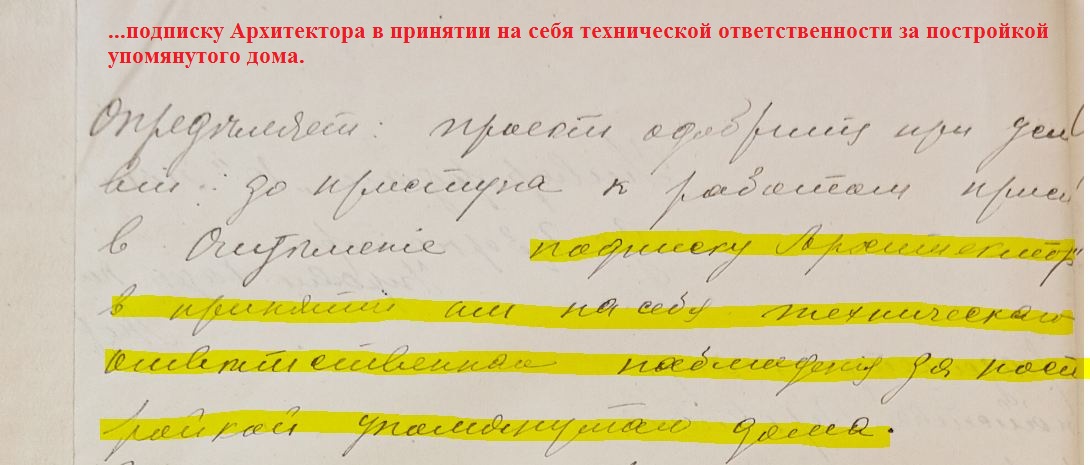 ...подписку Архитектора в принятии на себя технической ответственности за постройкой
упомянутого дома.
Опредѣляетъ: проектъ одобрить при усл
віи: до приступа къ работам при
в Отдѣленіе подписку Архитектор
в принятіи им на себя техническаго
ответственнаго наблюденія за пост
ройкой упомянутаго дома.